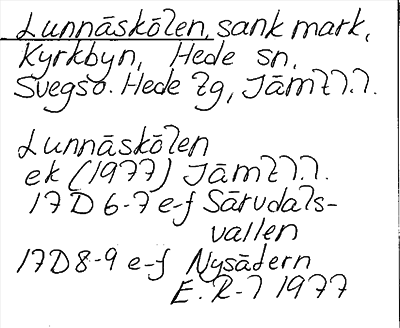 Lunnäskölen, sank mark,
Kyrkbyn, Hede sn,
Svegs o. Hede tg, Jämtl.
Lunnäskölen
ek (1977) Jämtl.
17D 6-7 e-f Särvdals-
vallen
17D 8-9 e-f Nysätern
E. R-l 1977